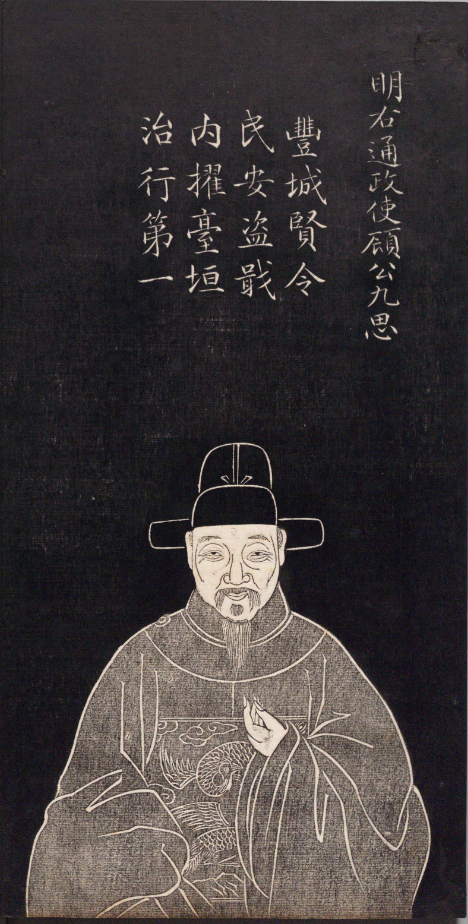 明右通政使顧公九思
豐城賢令
民安盜戢
内擢臺垣
治行第一